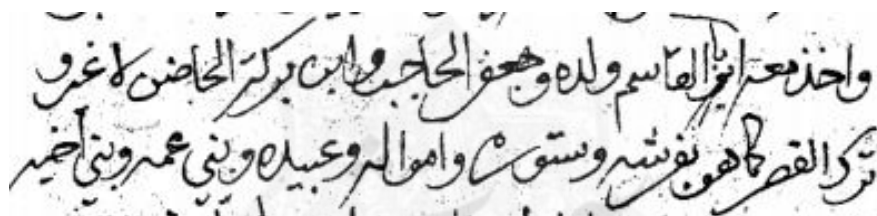 واخذ معه ابي القاسم ولده وجعفر الحاجب وابن بركة الحاضن لا غير و
ترك القصر كما هو بفرشه وستوره وامواله وعبيده وبني عمه وبني أخيه